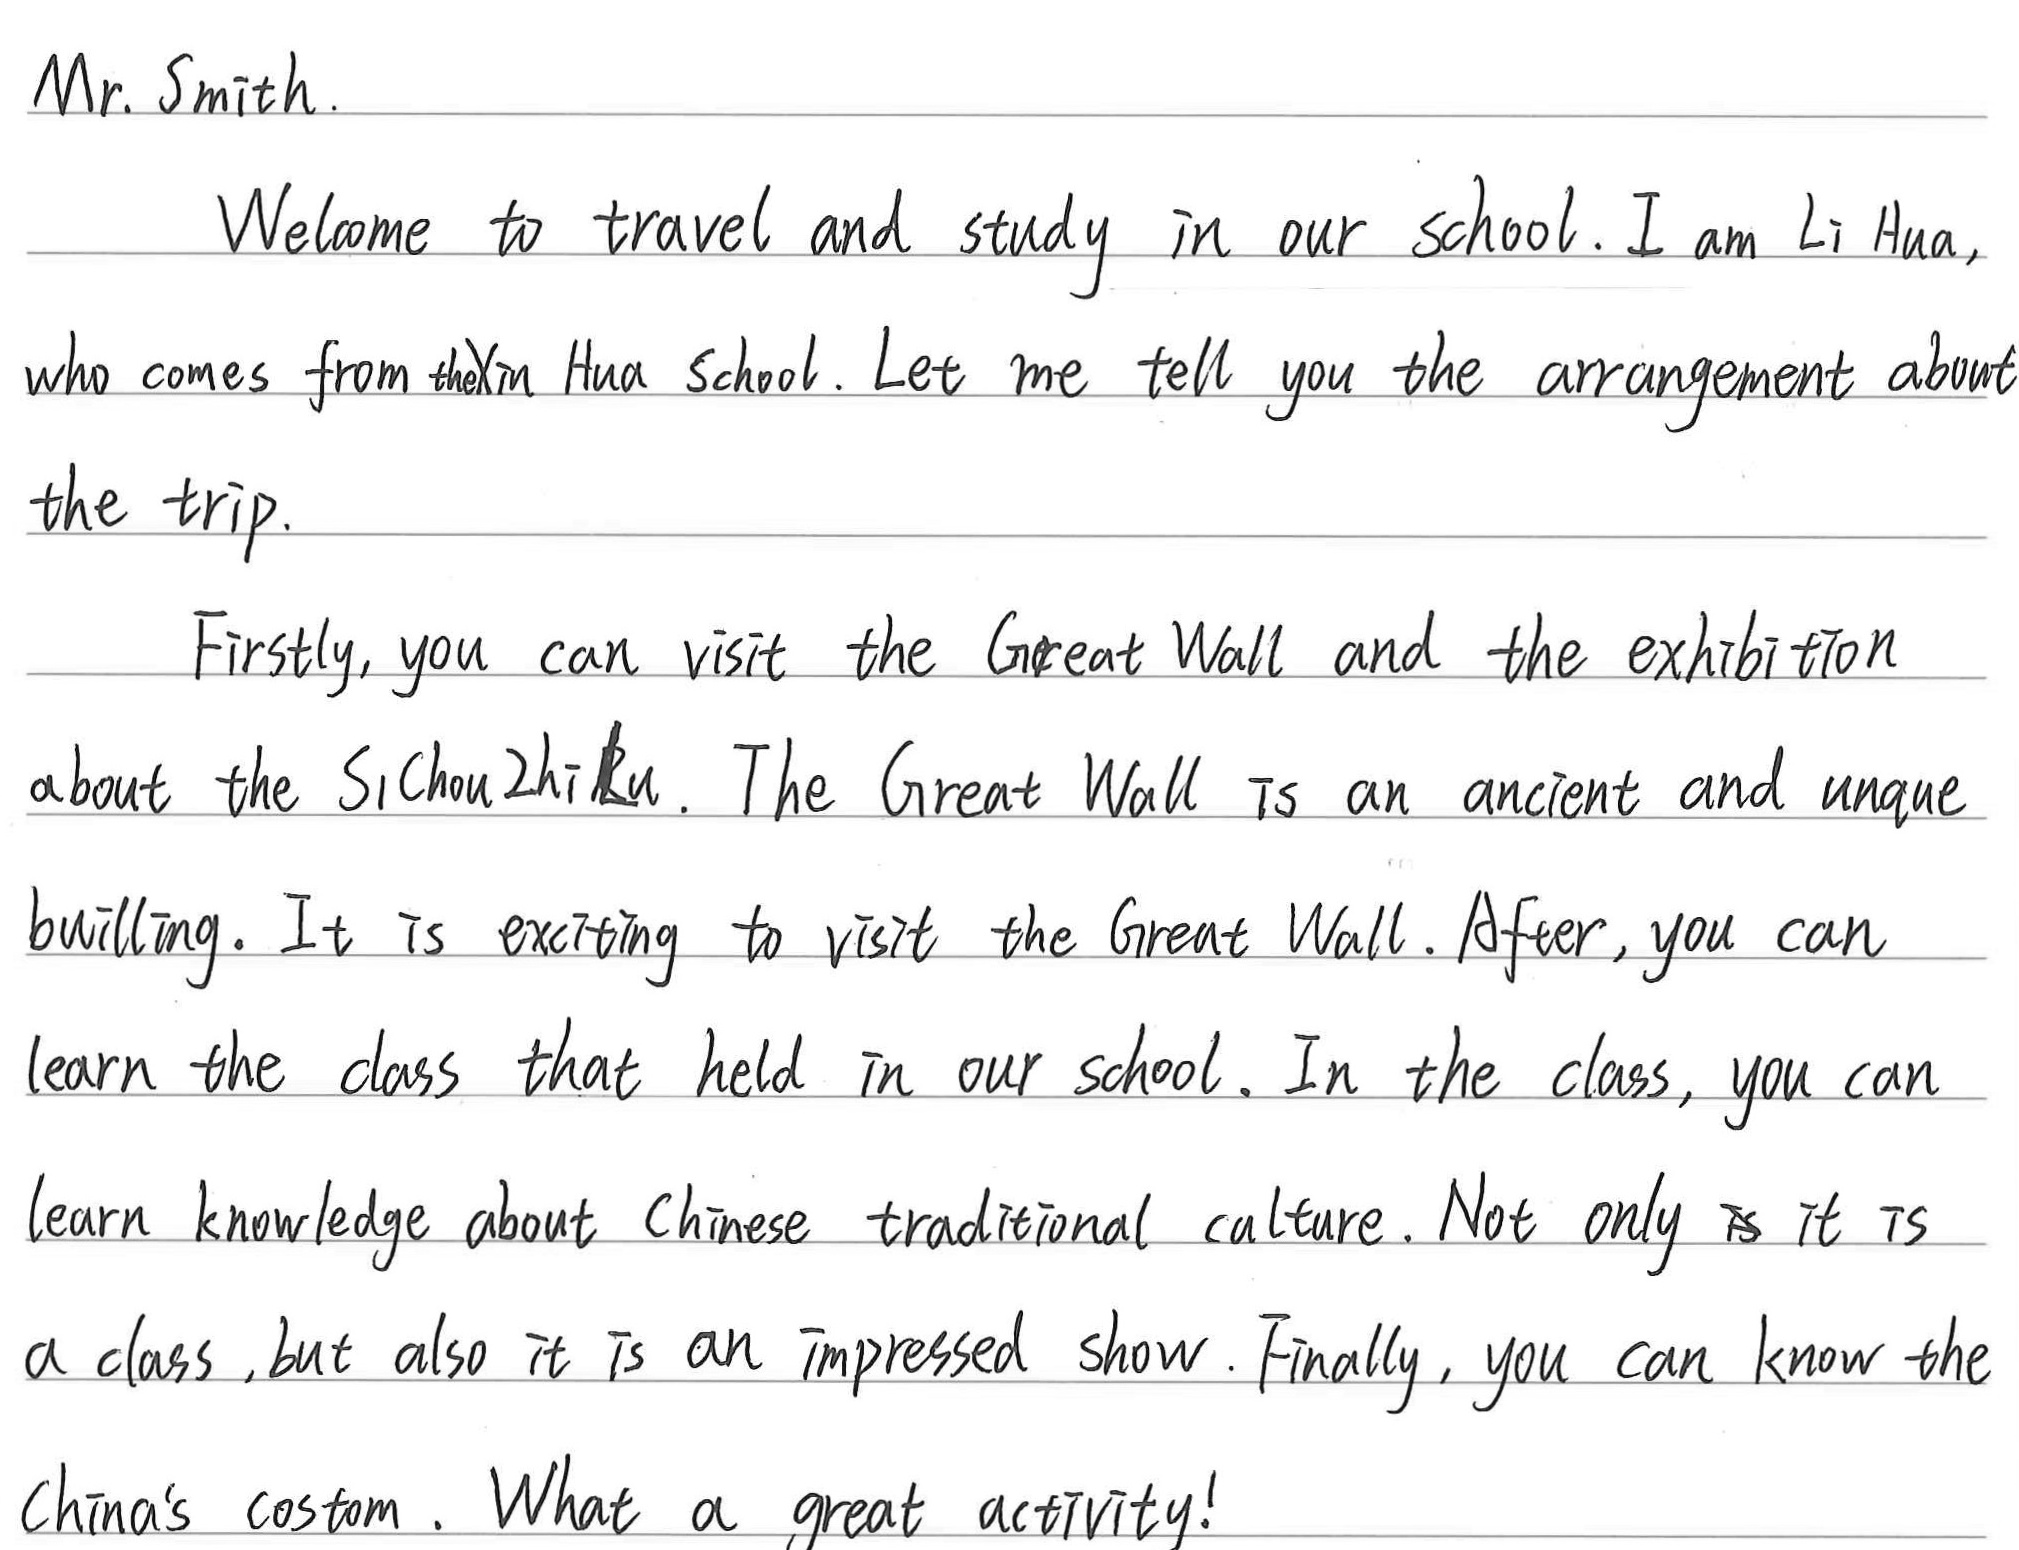 Mr. Smith.
Welcome to travel and study in our school. I am Li Hua,
who comes from the Xin Hua School. Let me tell you the arrangement about
the trip.
Firstly, you can visit the Great Wall and the exhibition
about the SiChouZhiLu. The Great Wall is an ancient and unque
builling. It is exciting to visit the Great Wall. After, you can
learn the class that held in our school. In the class, you can
learn knowledge about Chinese traditional culture. Not only it is
a class, but also it is an impressed show. Finally, you can know the
China's costom. What a great activity!